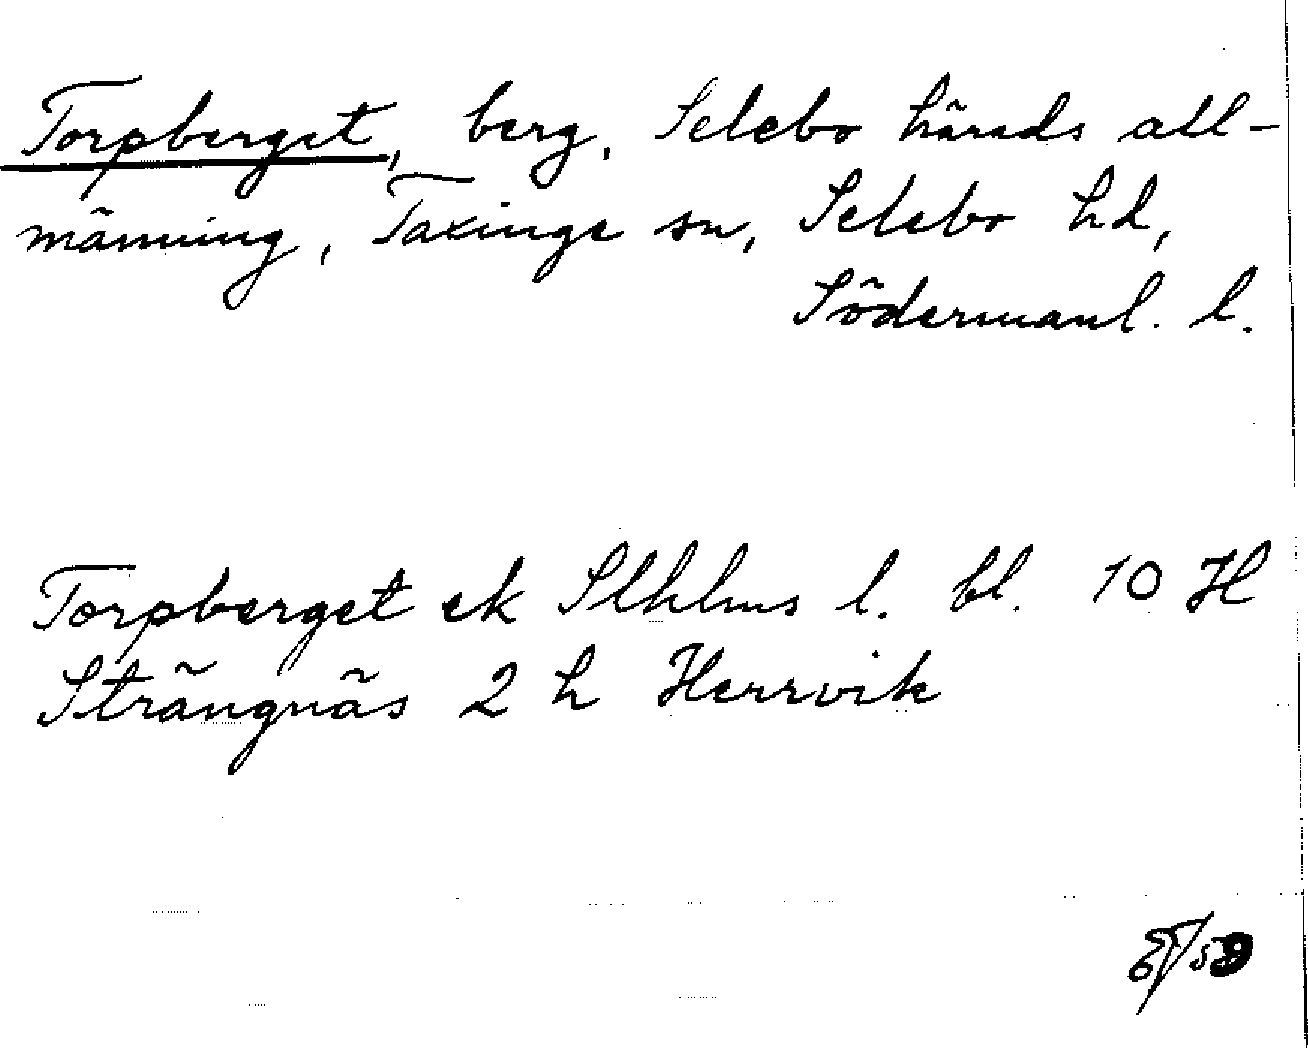 Torpberget, berg, Selebo härads all-
männing, Taxinge sn, Selebo hd,
Södermanl. l.
Torpberget ek Sthlms l. bl. 10 H
Strängnäs 2 h Herrvik
59